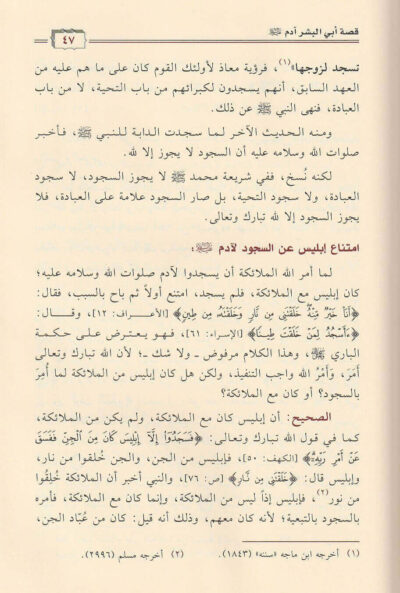 قصة أبي البشر آدم ﷺ
٤٧
تسجد لزوجها»(١)، فرؤية معاذ لأولئك القوم كان على ما هم عليه من
العهد السابق، أنهم يسجدون لكبرائهم من باب التحية، لا من باب
العبادة، فنهى النبي ﷺ عن ذلك.
ومنه الحديث الآخر لما سجدت الدابة للنبي ﷺ، فأخبر
صلوات الله وسلامه عليه أن السجود لا يجوز إلا لله.
لكنه نُسخ، ففي شريعة محمد ﷺ لا يجوز السجود، لا سجود
العبادة، ولا سجود التحية، بل صار السجود علامة على العبادة، فلا
يجوز السجود إلا لله تبارك وتعالى.
امتناع إبليس عن السجود لآدم ﷺ:
لما أمر الله الملائكة أن يسجدوا لآدم صلوات الله وسلامه عليه؛
كان إبليس مع الملائكة، فلم يسجد، امتنع أولاً ثم باح بالسبب، فقال:
﴿أَنَا خَيْرٌ مِّنْهُ خَلَقْتَنِي مِن نَّارٍ وَخَلَقْتَهُ مِن طِينٍ﴾ [الأعراف: ١٢]، وقال:
﴿ءَأَسْجُدُ لِمَنْ خَلَقْتَ طِينًا﴾ [الإسراء: ٦١]، فهو يعترض على حكمة
الباري ﷻ، وهذا الكلام مرفوض ـ ولا شك ـ؛ لأن الله تبارك وتعالى
أَمَرَ، وَأَمْرُ الله واجب التنفيذ، ولكن هل كان إبليس من الملائكة لما أُمِرَ
بالسجود؟ أو كان مع الملائكة؟
الصحيح: أن إبليس كان مع الملائكة، ولم يكن من الملائكة،
كما في قول الله تبارك وتعالى: ﴿فَسَجَدُوا إِلَّا إِبْلِيسَ كَانَ مِنَ الْجِنِّ فَفَسَقَ
عَنْ أَمْرِ رَبِّهِ﴾ [الكهف: ٥٠]، فإبليس من الجن، والجن خُلقوا من نار،
وإبليس قال: ﴿خَلَقْتَنِي مِن نَّارٍ﴾ [ص: ٧٦]، والنبي أخبر أن الملائكة خُلِقُوا
من نور(٢)، فإبليس إذاً ليس من الملائكة، وإنما كان مع الملائكة، فأمره
بالسجود بالتبعية؛ لأنه كان معهم، وذلك أنه قيل: كان من عُبَّاد الجن،
(١) أخرجه ابن ماجه «سننه» (١٨٤٣).
(٢) أخرجه مسلم (٢٩٩٦).